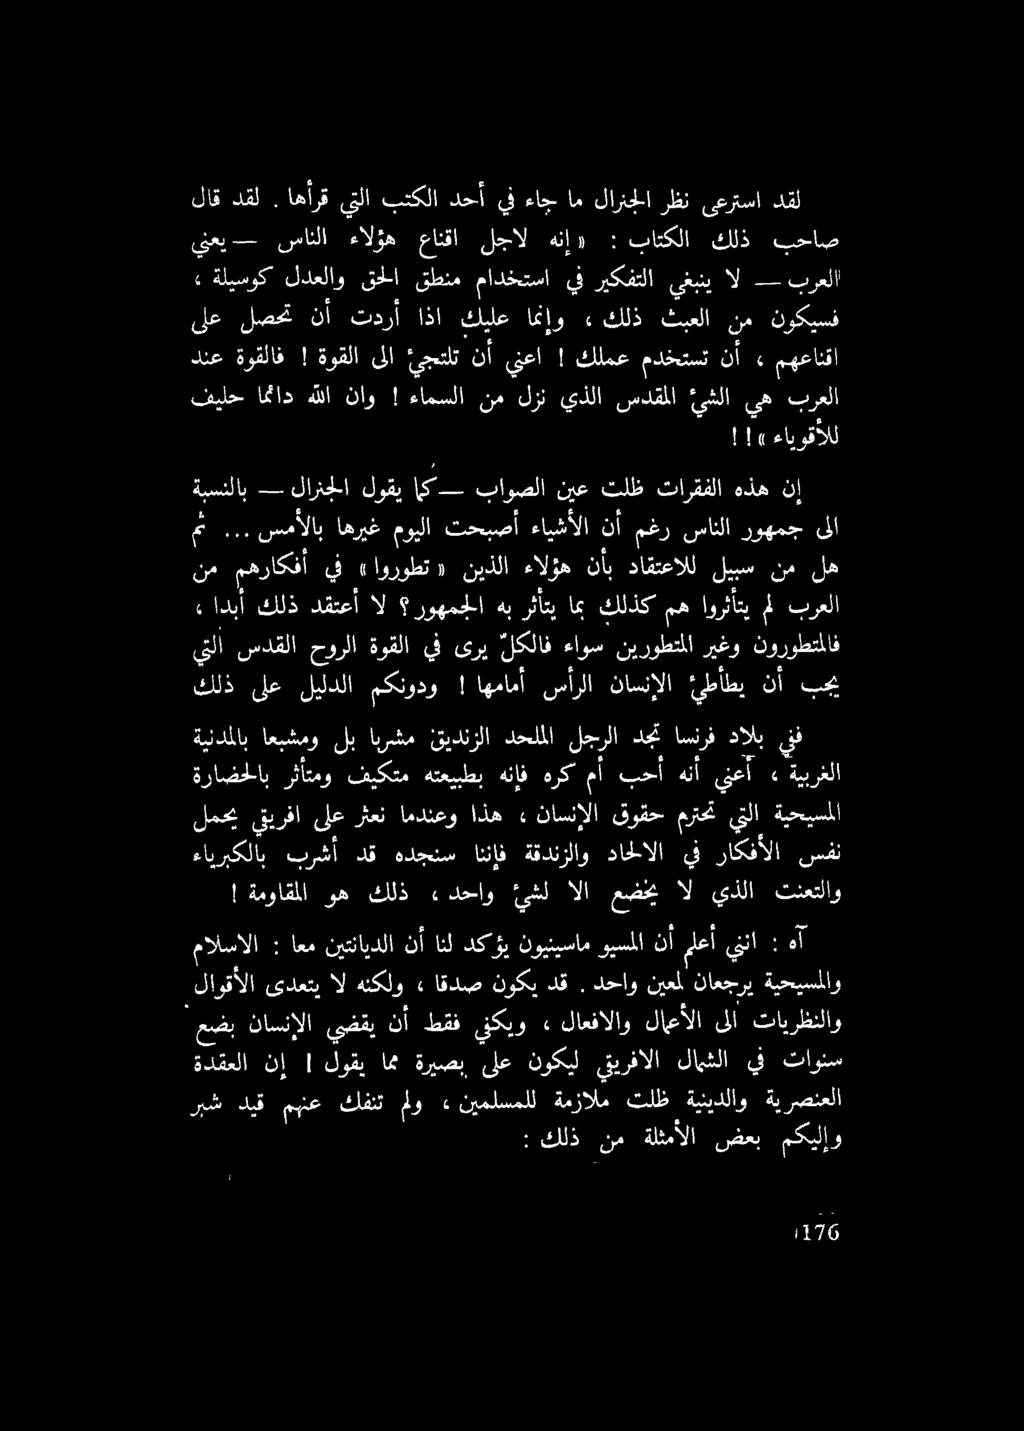 لقد استرعى نظر الجنرال ما جاء في أحد الكتب التي قرأها . لقد قال
صاحب ذلك الكتاب : « إنه لاجل اقناع هؤلاء الناس — يعني
العرب — لا ينبغي التفكير في استخدام منطق الحق والعدل كوسيلة ،
فسيكون من العبث ذلك ، وإنما عليك اذا أردت أن تحصل على
اقناعهم ، أن تستخدم عملك ! اعني أن تلتجئ الى القوة ! فالقوة عند
العرب هي الشئ المقدس الذي نزل من السماء ! وان الله دائما حليف
للأقوياء » ! !
إن هذه الفقرات ظلت عين الصواب — كما يقول الجنرال — بالنسبة
الى جمهور الناس رغم أن الأشياء أصبحت اليوم غيرها بالأمس ... ثم
هل من سبيل للاعتقاد بأن هؤلاء الذين « تطوروا » في أفكارهم من
العرب لم يتأثروا هم كذلك بما يتأثر به الجمهور ؟ لا أعتقد ذلك أبدا ،
فالمتطورون وغير المتطورين سواء فالكلّ يرى في القوة الروح القدس التي
يجب أن يطأطئ الإنسان الرأس أمامها ! ودونكم الدليل على ذلك
ففي بلاد فرنسا تجد الرجل الملحد الزنديق مشربا بل ومشبعا بالمدنية
الغربية ، أعني أنه أحب أم كره فإنه بطبيعته متكيف ومتأثر بالحضارة
المسيحية التي تحترم حقوق الإنسان ، هذا وعندما نعثر على افريقي يحمل
نفس الأفكار في الالحاد والزندقة فإننا سنجده قد أشرب بالكبرياء
والتعنت الذي لا يخضع الا لشئ واحد ، ذلك هو المقاومة !
آه : انني أعلم أن المسيو ماسينيون يؤكد لنا أن الديانتين معا : الاسلام
والمسيحية يرجعان لمعين واحد . قد يكون صدقا ، ولكنه لا يتعدى الأقوال
والنظريات الى الأعمال والافعال ، ويكفي فقط أن يقضي الإنسان بضع
سنوات في الشمال الافريقي ليكون على بصيرة مما يقول ! إن العقدة
العنصرية والدينية ظلت ملازمة للمسلمين ، ولم تنفك عنهم قيد شبر
وإليكم بعض الأمثلة من ذلك :
176